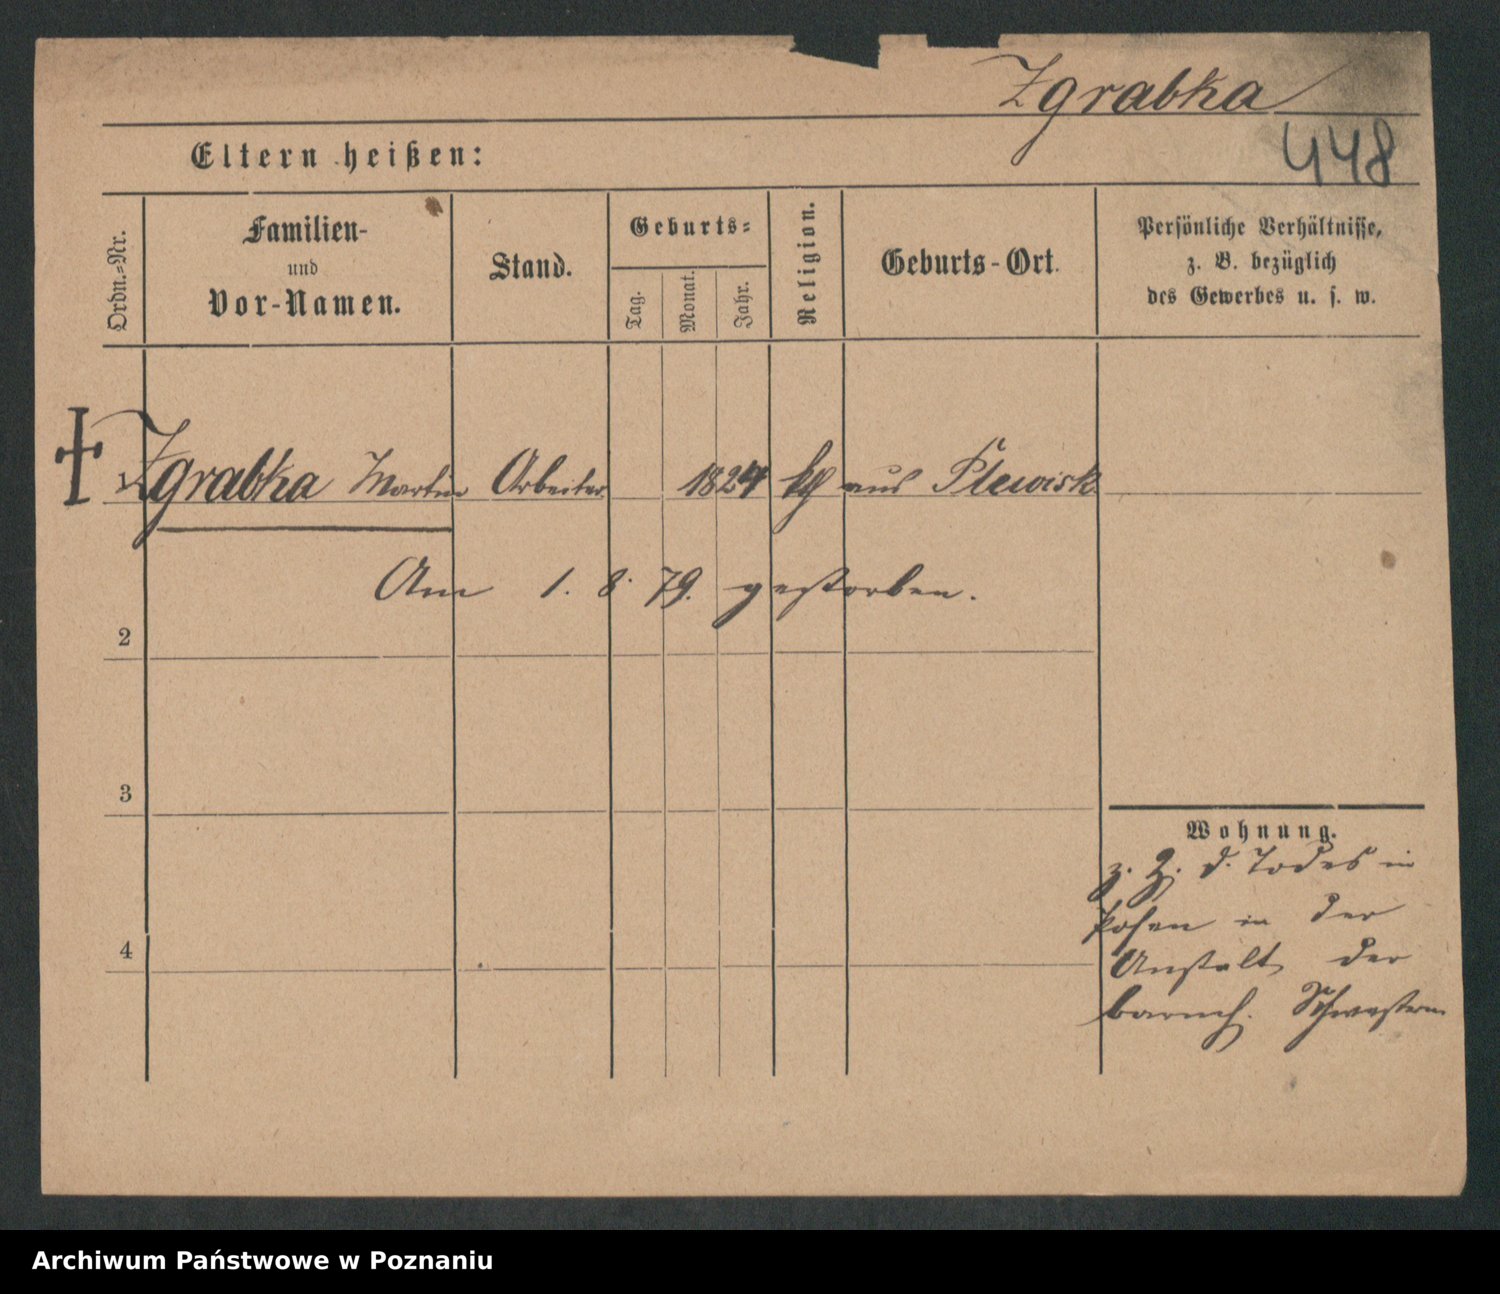 Zgrabka
448
Eltern heißen:
Ordn.-Nr.
Familien-
und
Vor-Namen.
Stand.
Geburts-
Tag.
Monat.
Jahr.
Religion.
Geburts-Ort.
Persönliche Verhältnisse,
z. B. bezüglich
des Gewerbes u. s. w.
1 Zgrabka Martin Arbeiter 1824 kth aus Plewisk
Am 1. 8. 79. gestorben.
2
3
4
Wohnung.
z. Z. d. Todes in
Posen in der
Anstalt der
barmh. Schwestern
Archiwum Państwowe w Poznaniu